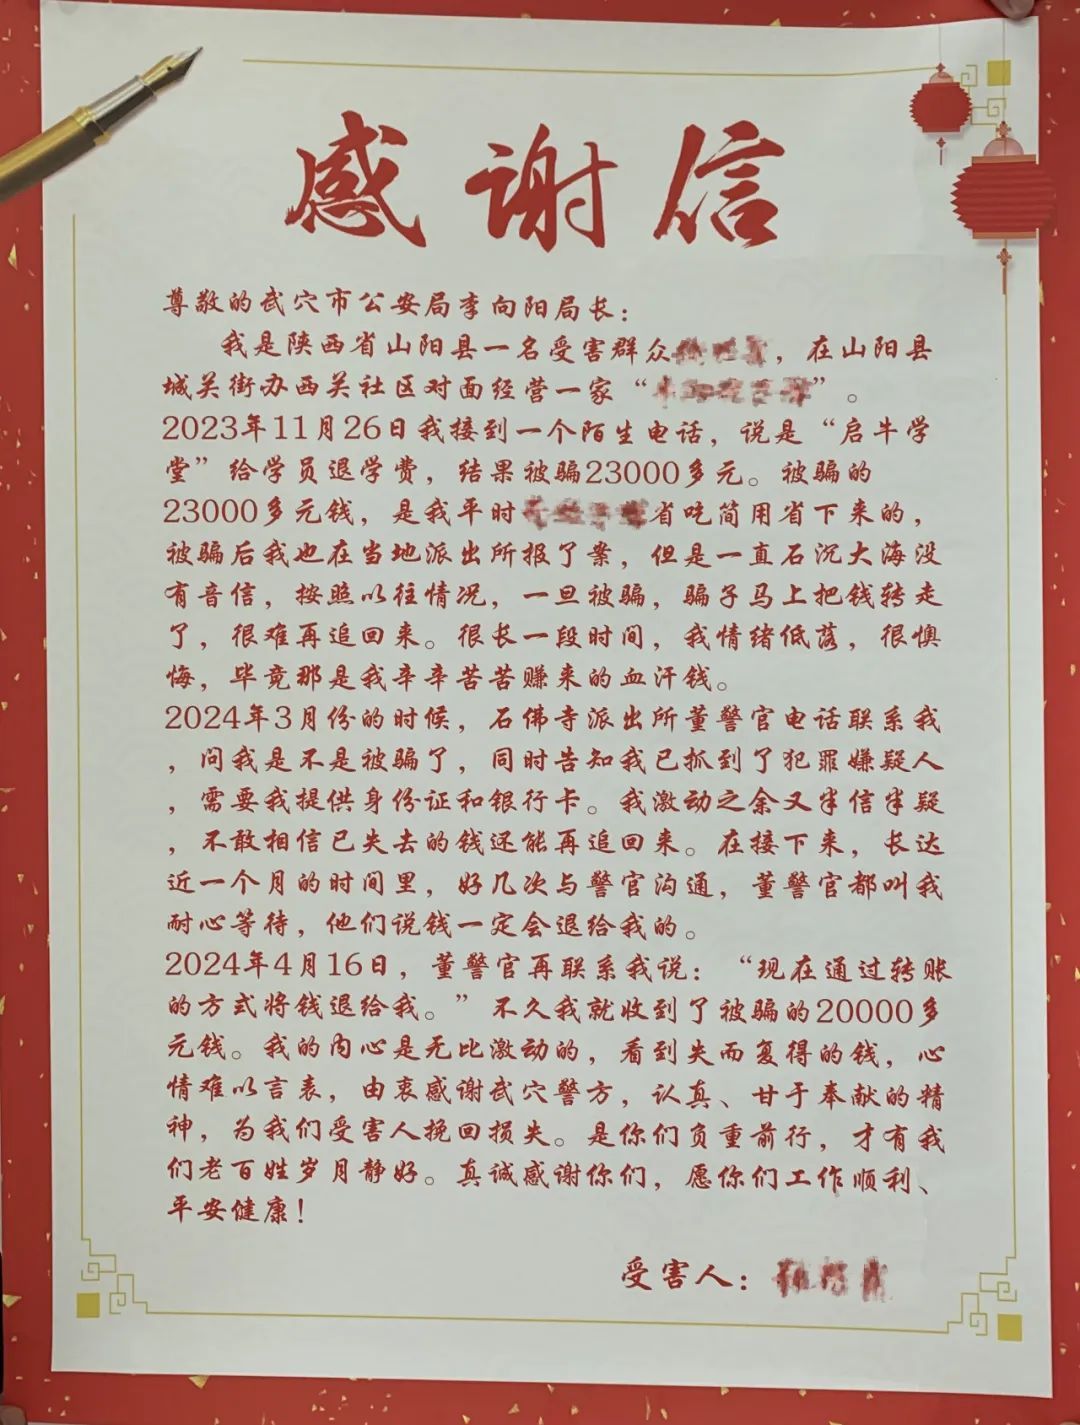 感谢信
尊敬的武穴市公安局李向阳局长：
我是陕西省山阳县一名受害群众，在山阳县
城关街办西关社区对面经营一家“”。
2023年11月26日我接到一个陌生电话，说是“启牛学
堂”给学员退学费，结果被骗23000多元。被骗的
23000多元钱，是我平时省吃简用省下来的，
被骗后我也在当地派出所报了案，但是一直石沉大海没
有音信，按照以往情况，一旦被骗，骗子马上把钱转走
了，很难再追回来。很长一段时间，我情绪低落，很懊
悔，毕竟那是我辛辛苦苦赚来的血汗钱。
2024年3月份的时候，石佛寺派出所董警官电话联系我
，问我是不是被骗了，同时告知我已抓到了犯罪嫌疑人
，需要我提供身份证和银行卡。我激动之余又半信半疑
，不敢相信已失去的钱还能再追回来。在接下来，长达
近一个月的时间里，好几次与警官沟通，董警官都叫我
耐心等待，他们说钱一定会退给我的。
2024年4月16日，董警官再联系我说：“现在通过转账
的方式将钱退给我。”不久我就收到了被骗的20000多
元钱。我的内心是无比激动的，看到失而复得的钱，心
情难以言表，由衷感谢武穴警方，认真、甘于奉献的精
神，为我们受害人挽回损失。是你们负重前行，才有我
们老百姓岁月静好。真诚感谢你们，愿你们工作顺利、
平安健康！
受害人：